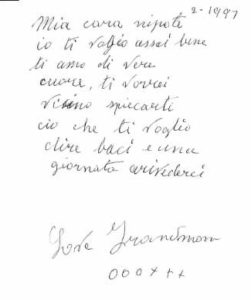 2-1997
Mia cara nipote
io ti voglio assai bene
ti amo di vero
cuore, ti vorrei
vicino spiecarti
ciò che ti voglio
dire baci e una
giornata arivederci
Love Grandmom
000xxx